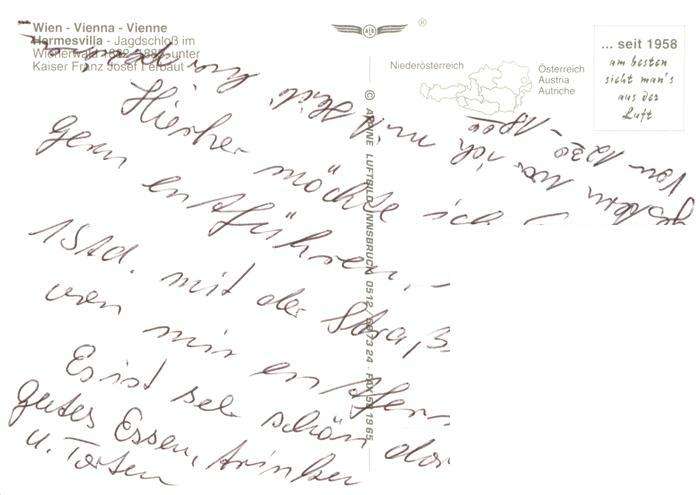 Wien - Vienna - Vienne
Hermesvilla - Jagdschloß im
Wienerwald 1882-1886 unter
Kaiser Franz Josef I erbaut
®
Niederösterreich
Österreich
Austria
Autriche
... seit 1958
am besten
sieht man's
aus der
Luft
© ALPINE LUFTBILD INNSBRUCK 0512 / FAX
Hierher möchte ich
gern entführen, -
1 Std. mit der Straß
von mir entfern
Es ist sehr schön dor
gutes Essen, trinken
u. Torten
gestern war ich mit
von 1230 - 1800